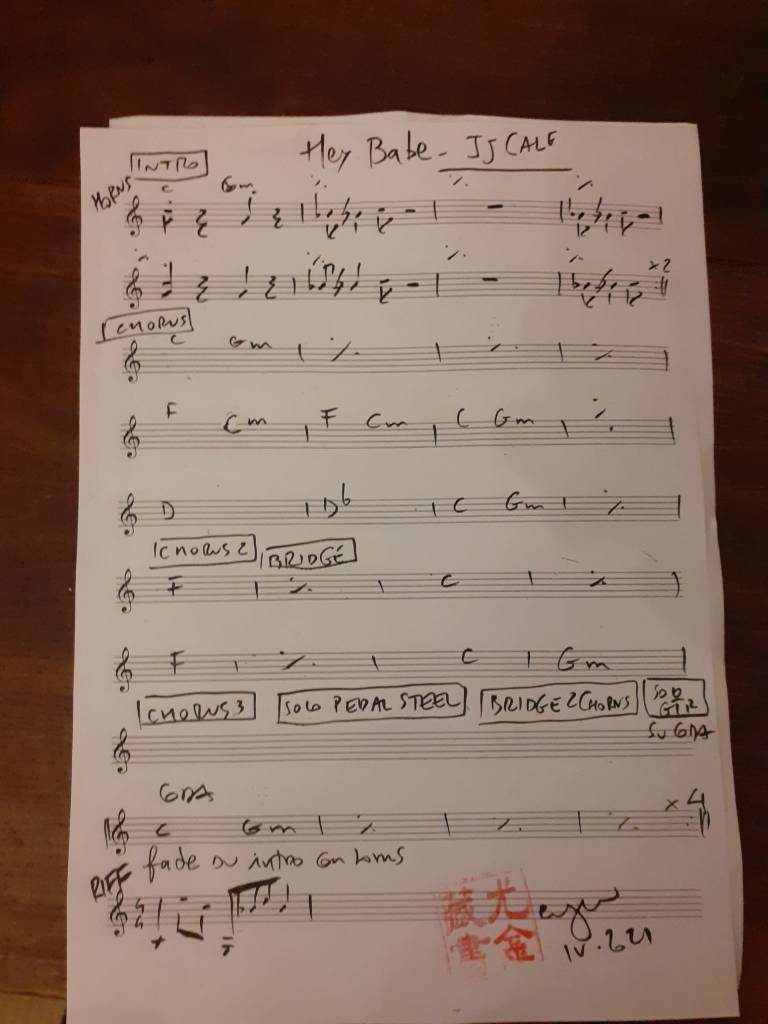 Hey Babe - JJ CALE
INTRO
HORNS
C Gm ٪ ٪ ٪
٪ ٪ ٪ x2
CHORUS
C Gm ٪ ٪ ٪
F Cm F Cm C Gm ٪
D Db C Gm ٪
CHORUS 2 BRIDGE
F ٪ C ٪
F ٪ C Gm
CHORUS 3 SOLO PEDAL STEEL BRIDGE 2 CHORUS SOLO GTR
SU CODA
CODA
C Gm ٪ ٪ ٪ x4
RIFF fade su intro con horns
尤金
藏書
IV.2021